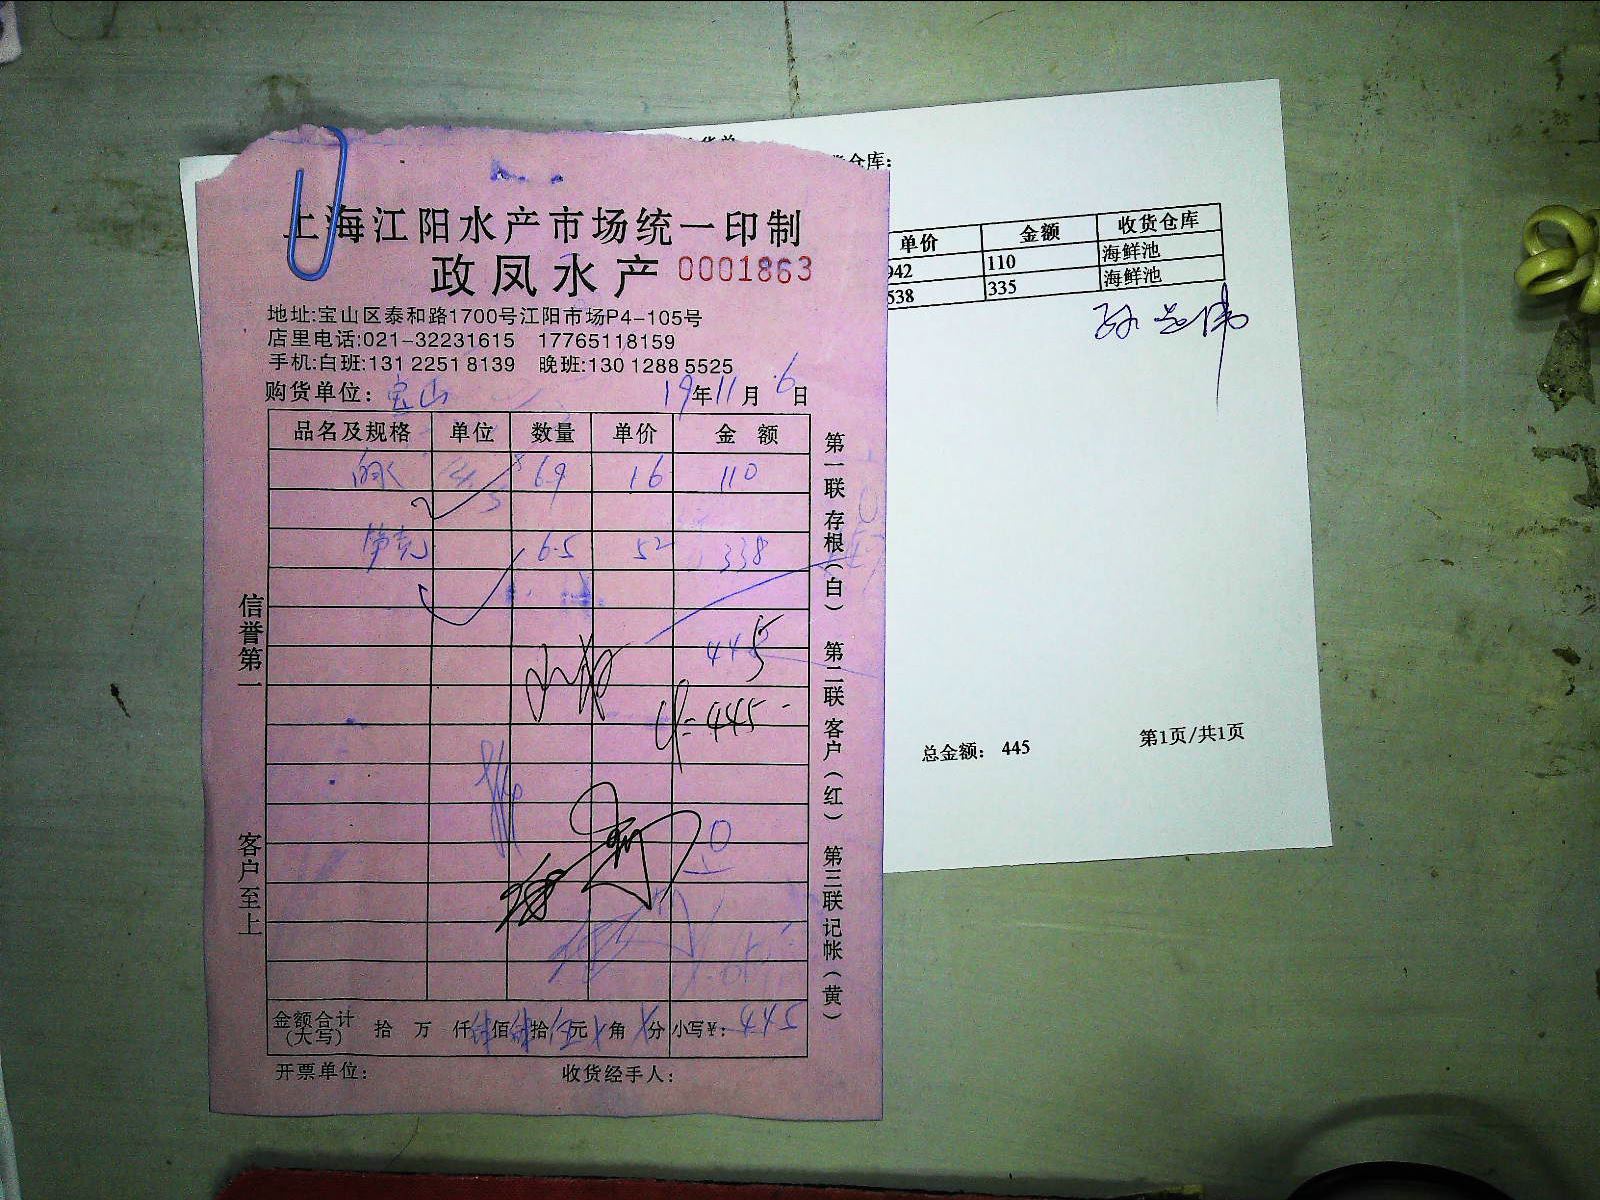 上海江阳水产市场统一印制
政凤水产 0001863
地址:宝山区泰和路1700号江阳市场P4-105号
店里电话:021-32231615 17765118159
手机:白班:131 2251 8139 晚班:130 1288 5525
购货单位: 宝山 19年11月6日
品名及规格 单位 数量 单价 金额
6.9 16 110
6.5 52 338
445
¥-445-
金额合计(大写) 拾 万 仟 肆佰肆拾伍元 角 分 小写¥: 445
开票单位: 收货经手人:
信誉第一
客户至上
第一联存根(白) 第二联客户(红) 第三联记帐(黄)
仓库:
单价 金额 收货仓库
942 110 海鲜池
538 335 海鲜池
总金额: 445 第1页/共1页